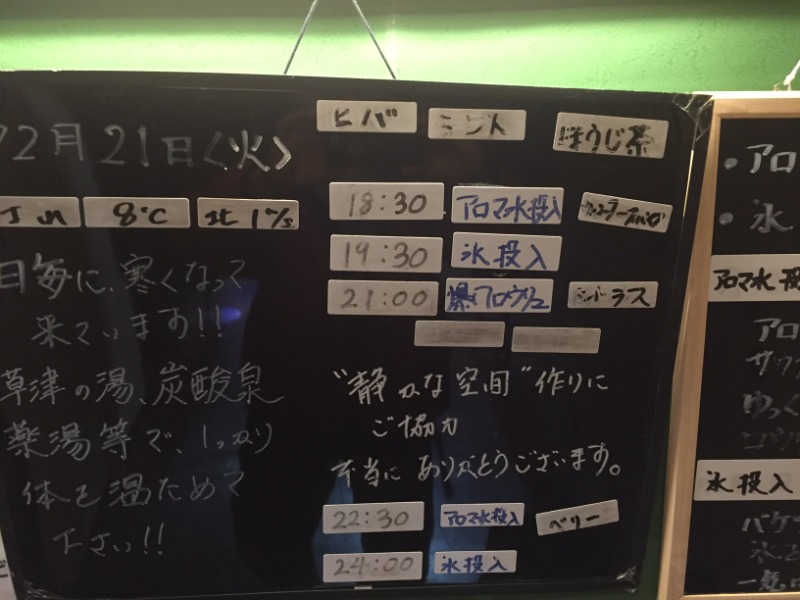 12月21日〈火〉
8℃ 北1m/s
日毎に、寒くなって
来ています!!
草津の湯、炭酸泉
薬湯等で、しっかり
体を温ためて
下さい!!
ヒバ ミント ほうじ茶
18:30 アロマ水投入
19:30 氷投入
21:00 爆アロウリュ ミントラス
"静かな空間"作りに
ご協力
本当にありがとうございます。
22:30 アロマ水投入 ベリー
24:00 氷投入
・アロ
・氷
アロマ水投
アロ
ゆっく
氷投入
バケ
氷